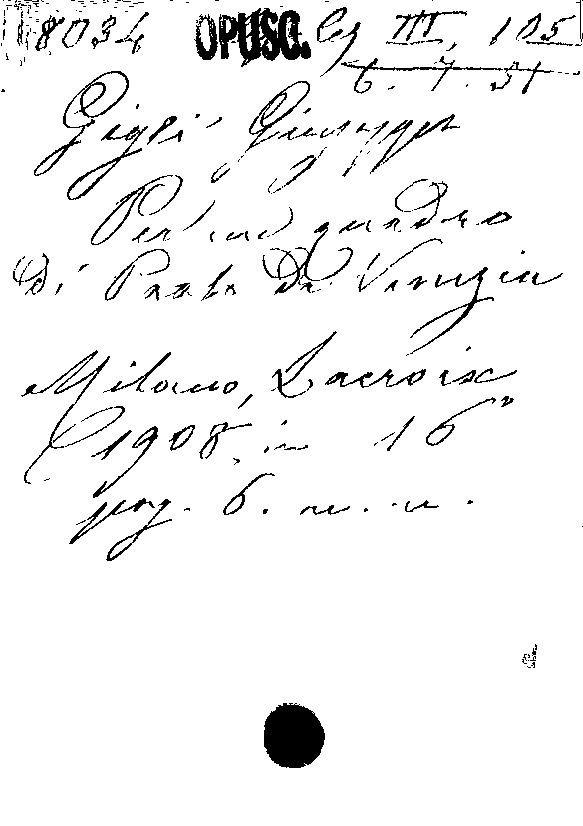 8034 OPUSC. Cg III, 105
6. 7. 31
Gigli Giuseppe
Per un quadro
di Paolo da Venezia
Milano, Lacroix
1908, in 16°
pag. 6. n. n.
d